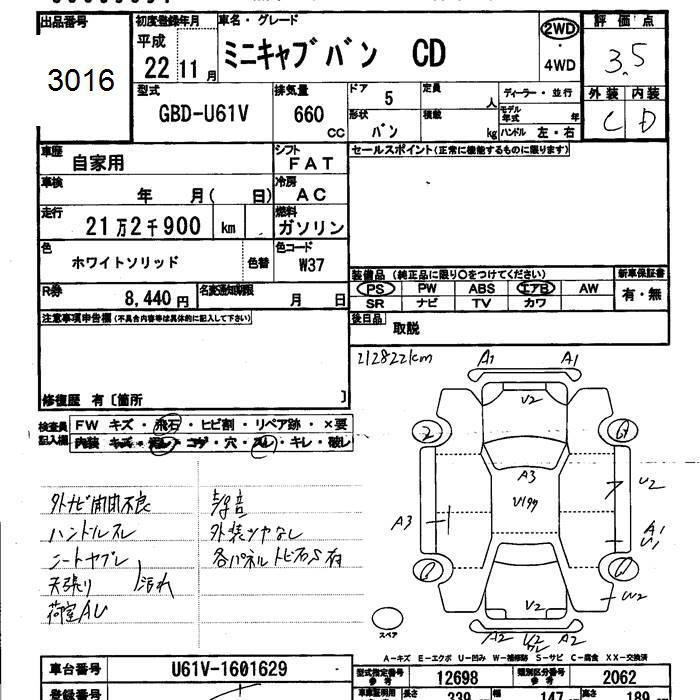 出品番号 初度登録年月 車名・グレード 評価点
3016 平成 22 11月 ミニキャブバン CD 2WD ・ 4WD 3.5
外装 内装
C D
型式 GBD-U61V 排気量 660 CC ドア 5 定員 人 ディーラー・並行
形状 バン 積載 kg モデル年式 年 ハンドル 左・右
車歴 自家用 シフト FAT セールスポイント(正常に機能するものに限ります)
車検 年 月( 日) 冷房 AC
走行 21万2千900 km 燃料 ガソリン
色 ホワイトソリッド 色替 色コード W37
装備品 (純正品に限り○をつけてください) 新車保証書
PS PW ABS エアB AW 有・無
SR ナビ TV カワ
R券 8,440円 名変通知期限 月 日
後日品 取説
注意事項申告欄(不具合内容等は具体的に記入して下さい)
修復歴 有〔箇所 〕
212822km
検査員記入欄 FW キズ・飛石・ヒビ割・リペア跡・×要
内装 キズ・汚レ・コゲ・穴・スレ・キレ・破レ
外ナビ開閉不良
ハンドルスレ
シートヤブレ
天張り 汚れ
荷室AU
異音
外装ツヤなし
各パネルトビ石S有
A1 A1
U2
A3
A3
U2
A1
U1
W2
U2
A2 U2 A2
スペア
A-キズ E-エクボ U-凹み W-補修跡 S-サビ C-腐食 XX-交換済
車台番号 U61V-1601629 型式指定番号 参考 12698 類別区分番号 参考 2062
登録番号 長さ 339 幅 147 高さ 189